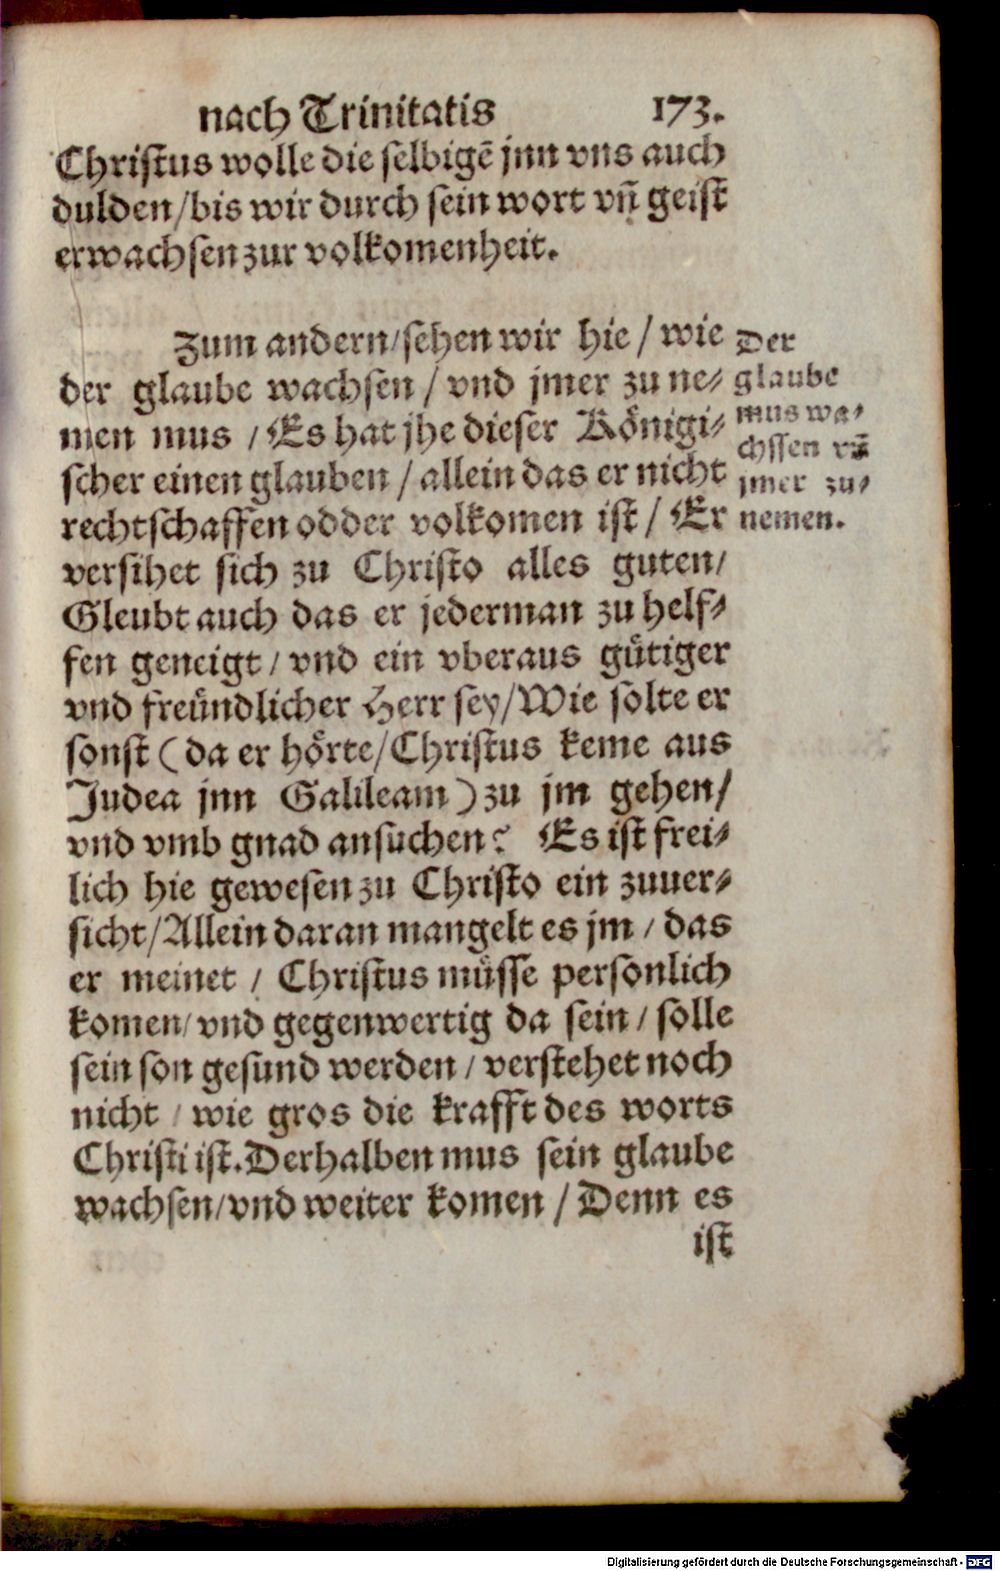 nach Trinitatis 173.
Christus wolle die selbigē jnn vns auch
dulden/bis wir durch sein wort vn̄ geist
erwachsen zur volkomenheit.
Zum andern/sehen wir hie / wie
der glaube wachsen / vnd jmer zu ne⸗
men mus / Es hat jhe dieser Königi⸗
scher einen glauben / allein das er nicht
rechtschaffen odder volkomen ist / Er
versihet sich zu Christo alles guten/
Gleubt auch das er jederman zu helf⸗
fen geneigt / vnd ein vberaus gütiger
vnd freündlicher Herr sey/Wie solte er
sonst ( da er hörte/Christus keme aus
Judea jnn Galileam ) zu jm gehen/
vnd vmb gnad ansuchen? Es ist frei⸗
lich hie gewesen zu Christo ein zuuer⸗
sicht/Allein daran mangelt es jm / das
er meinet / Christus müsse personlich
komen/ vnd gegenwertig da sein / solle
sein son gesund werden / verstehet noch
nicht / wie gros die krafft des worts
Christi ist.Derhalben mus sein glaube
wachsen/vnd weiter komen / Denn es
ist
Der
glaube
mus wa⸗
chssen vn̄
jmer zu⸗
nemen.
Digitalisierung gefördert durch die Deutsche Forschungsgemeinschaft - DFG